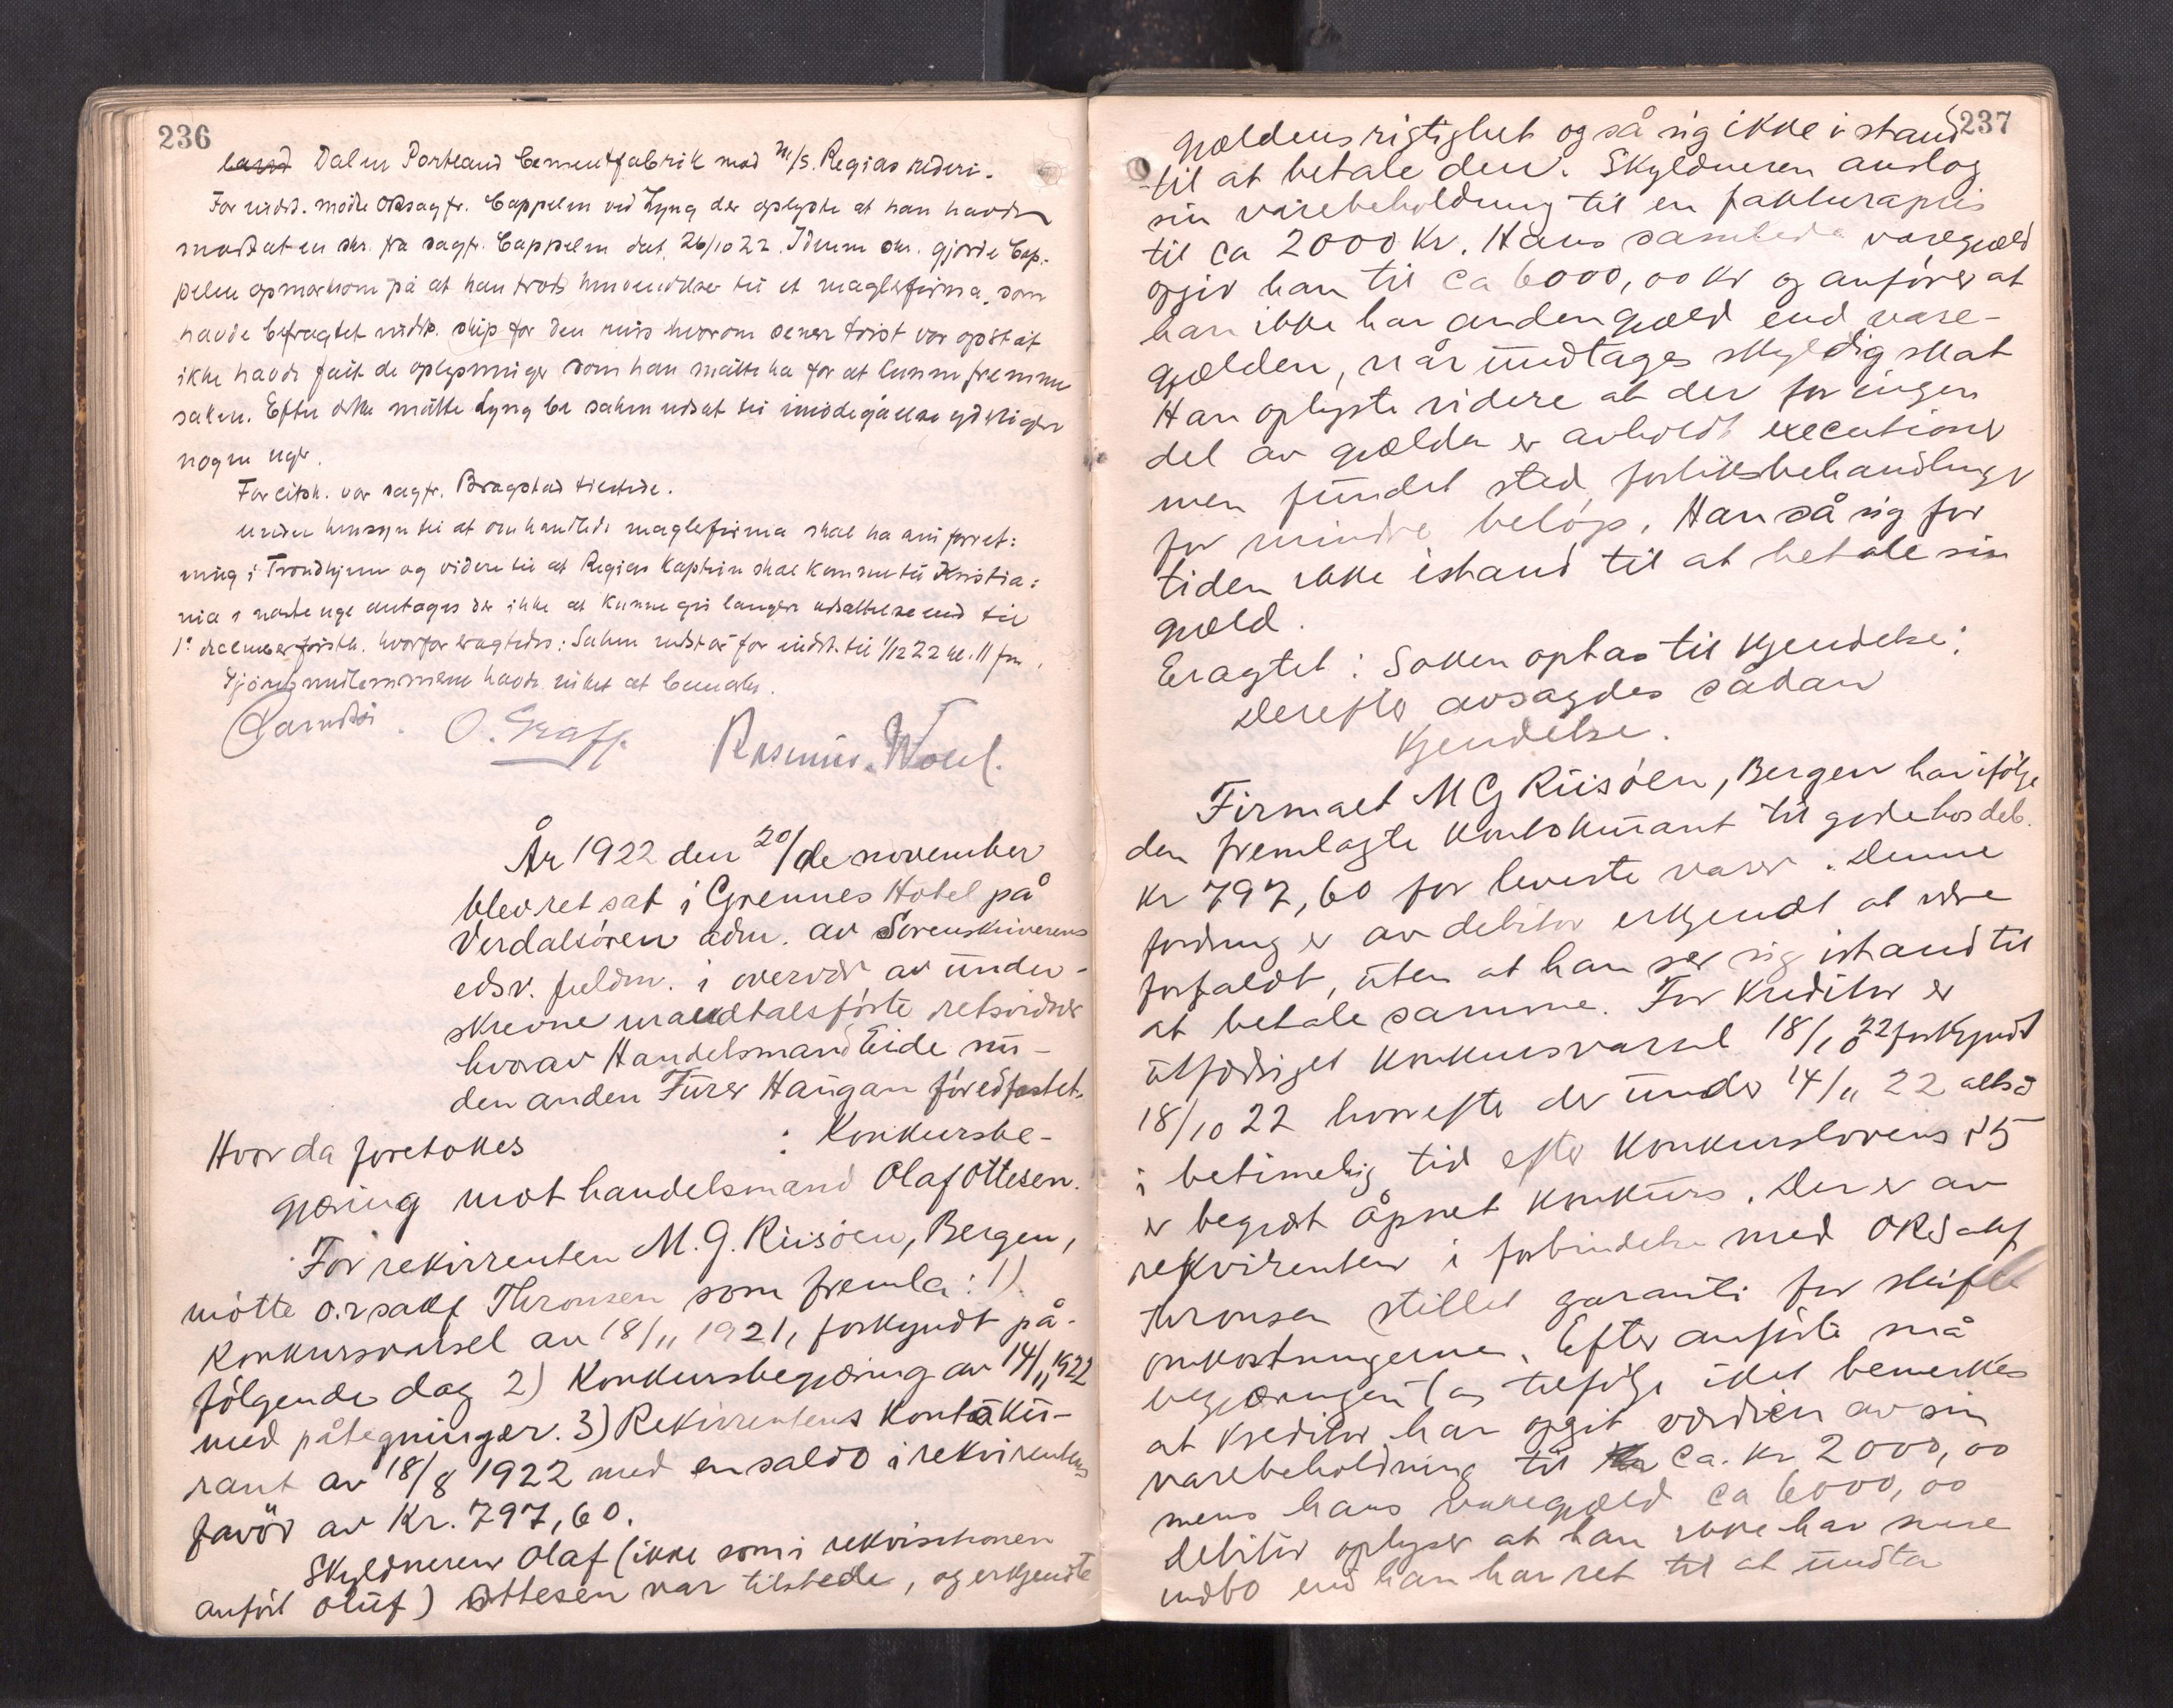 236
Dalen Portland Cementfabrik mod M/S. Regias rederi.
For indst. mötte ORsagfr. Cappelen ved Lyng der oplyste at han havde
mottat en skr. fra sagfr. Cappelen dat. 26/10 22. I denne skr. gjorde Cap-
pelen opmerksom på at han trods henvendelser til et meglerfirma, som
havde befragtet indst. skip for den reise hvorom senere tvist var opståt
ikke havde fåit de oplysninger som han måtte ha for at kunne fremme
saken. Efter dette måtte Lyng be saken utsat til imödegåelse yderligere
nogen uger.
For citsk. var sagfr. Bragstad tilstede.
Under hensyn til at omhandlede meglerfirma skal ha sin forret-
ning i Trondhjem og videre til at Regias kaptein skal komme til Kristia-
nia i neste uge antages der ikke at kunne gis længere utsættelse end til
1. december förstk. hvorfor eragtedes: Saken utstår for indst. til 1/12 22 kl. 11 fm.
Sjöretsmedlemmene havde intet at bemerke.
O. Graff. Rasmus Wold.
År 1922 den 20/de november
blev ret sat i Grennes Hotel på
Verdalsören adm. av Sorenskriverens
edsv. fuldm. i overvær av under-
skrevne mandtalsförte retsvidner
hvorav Handelsmand Eide nu-
den anden Furer Haugan för edfæstet.
Hvor da foretokes : Konkursbe-
gjæring mot handelsmand Olaf Ottesen.
For rekvirenten M. G. Riisöen, Bergen,
mötte o.r sakf Thronsen som fremla: 1)
Konkursvarsel av 18/11 1921, forkyndt på-
fölgende dag 2) Konkursbegjæring av 14/11 1922
med påtegninger. 3) Rekvirentens Kontoku-
rant av 18/8 1922 med en saldo i rekvirentens
favör av Kr. 797,60.
Skyldneren Olaf (ikke som i rekvisitionen
anfört Oluf) Ottesen var tilstede, og erkjendte
237
gjældens rigtighet og så sig ikke i stand
til at betale den. Skyldneren anslog
sin varebeholdning til en fakturapris
til ca 2000 Kr. Hans samlede varegjæld
opgir han til ca 6000,00 kr og anförer at
han ikke har anden gjæld end vare-
gjælden, når undtages skyldig skat
Han oplyste videre at der for ingen
del av gjælden er avholdt executioner
men fundet sted forliksbehandlinger
for mindre belöp. Han så sig for
tiden ikke istand til at betale sin
gjæld.
Eragtet: Saken optas til Kjendelse;
Derefter avsagdes sådan
Kjendelse.
Firmaet M G Riisöen, Bergen har ifölge
den fremlagte Kontokurant til gode hos deb.
Kr 797,60 for leverte varer. Denne
fordring er av debitor erkjendt at være
forfaldt, uten at han ser sig istand til
at betale samme. For Kreditor er
utferdiget Konkursvarsel 18/10 22 forkyndt
18/10 22 hvorefter der under 14/11 22 altså
i betimelig tid efter Konkurslovens § 5
er begjært åpnet Konkurs. Der er av
rekvirenten i forbindelse med ORSakf
Thronsen stillet garanti for skifte
omkostningerne. Efter anförte må
begjæringen tas tilfölge idet bemerkes
at Kreditor har opgit værdien av sin
varebeholdning til ca. Kr 2000,00
mens hans varegjæld ca 6000,00
Debitor oplyser at han ikke har mere
indbo end han har ret til at undta